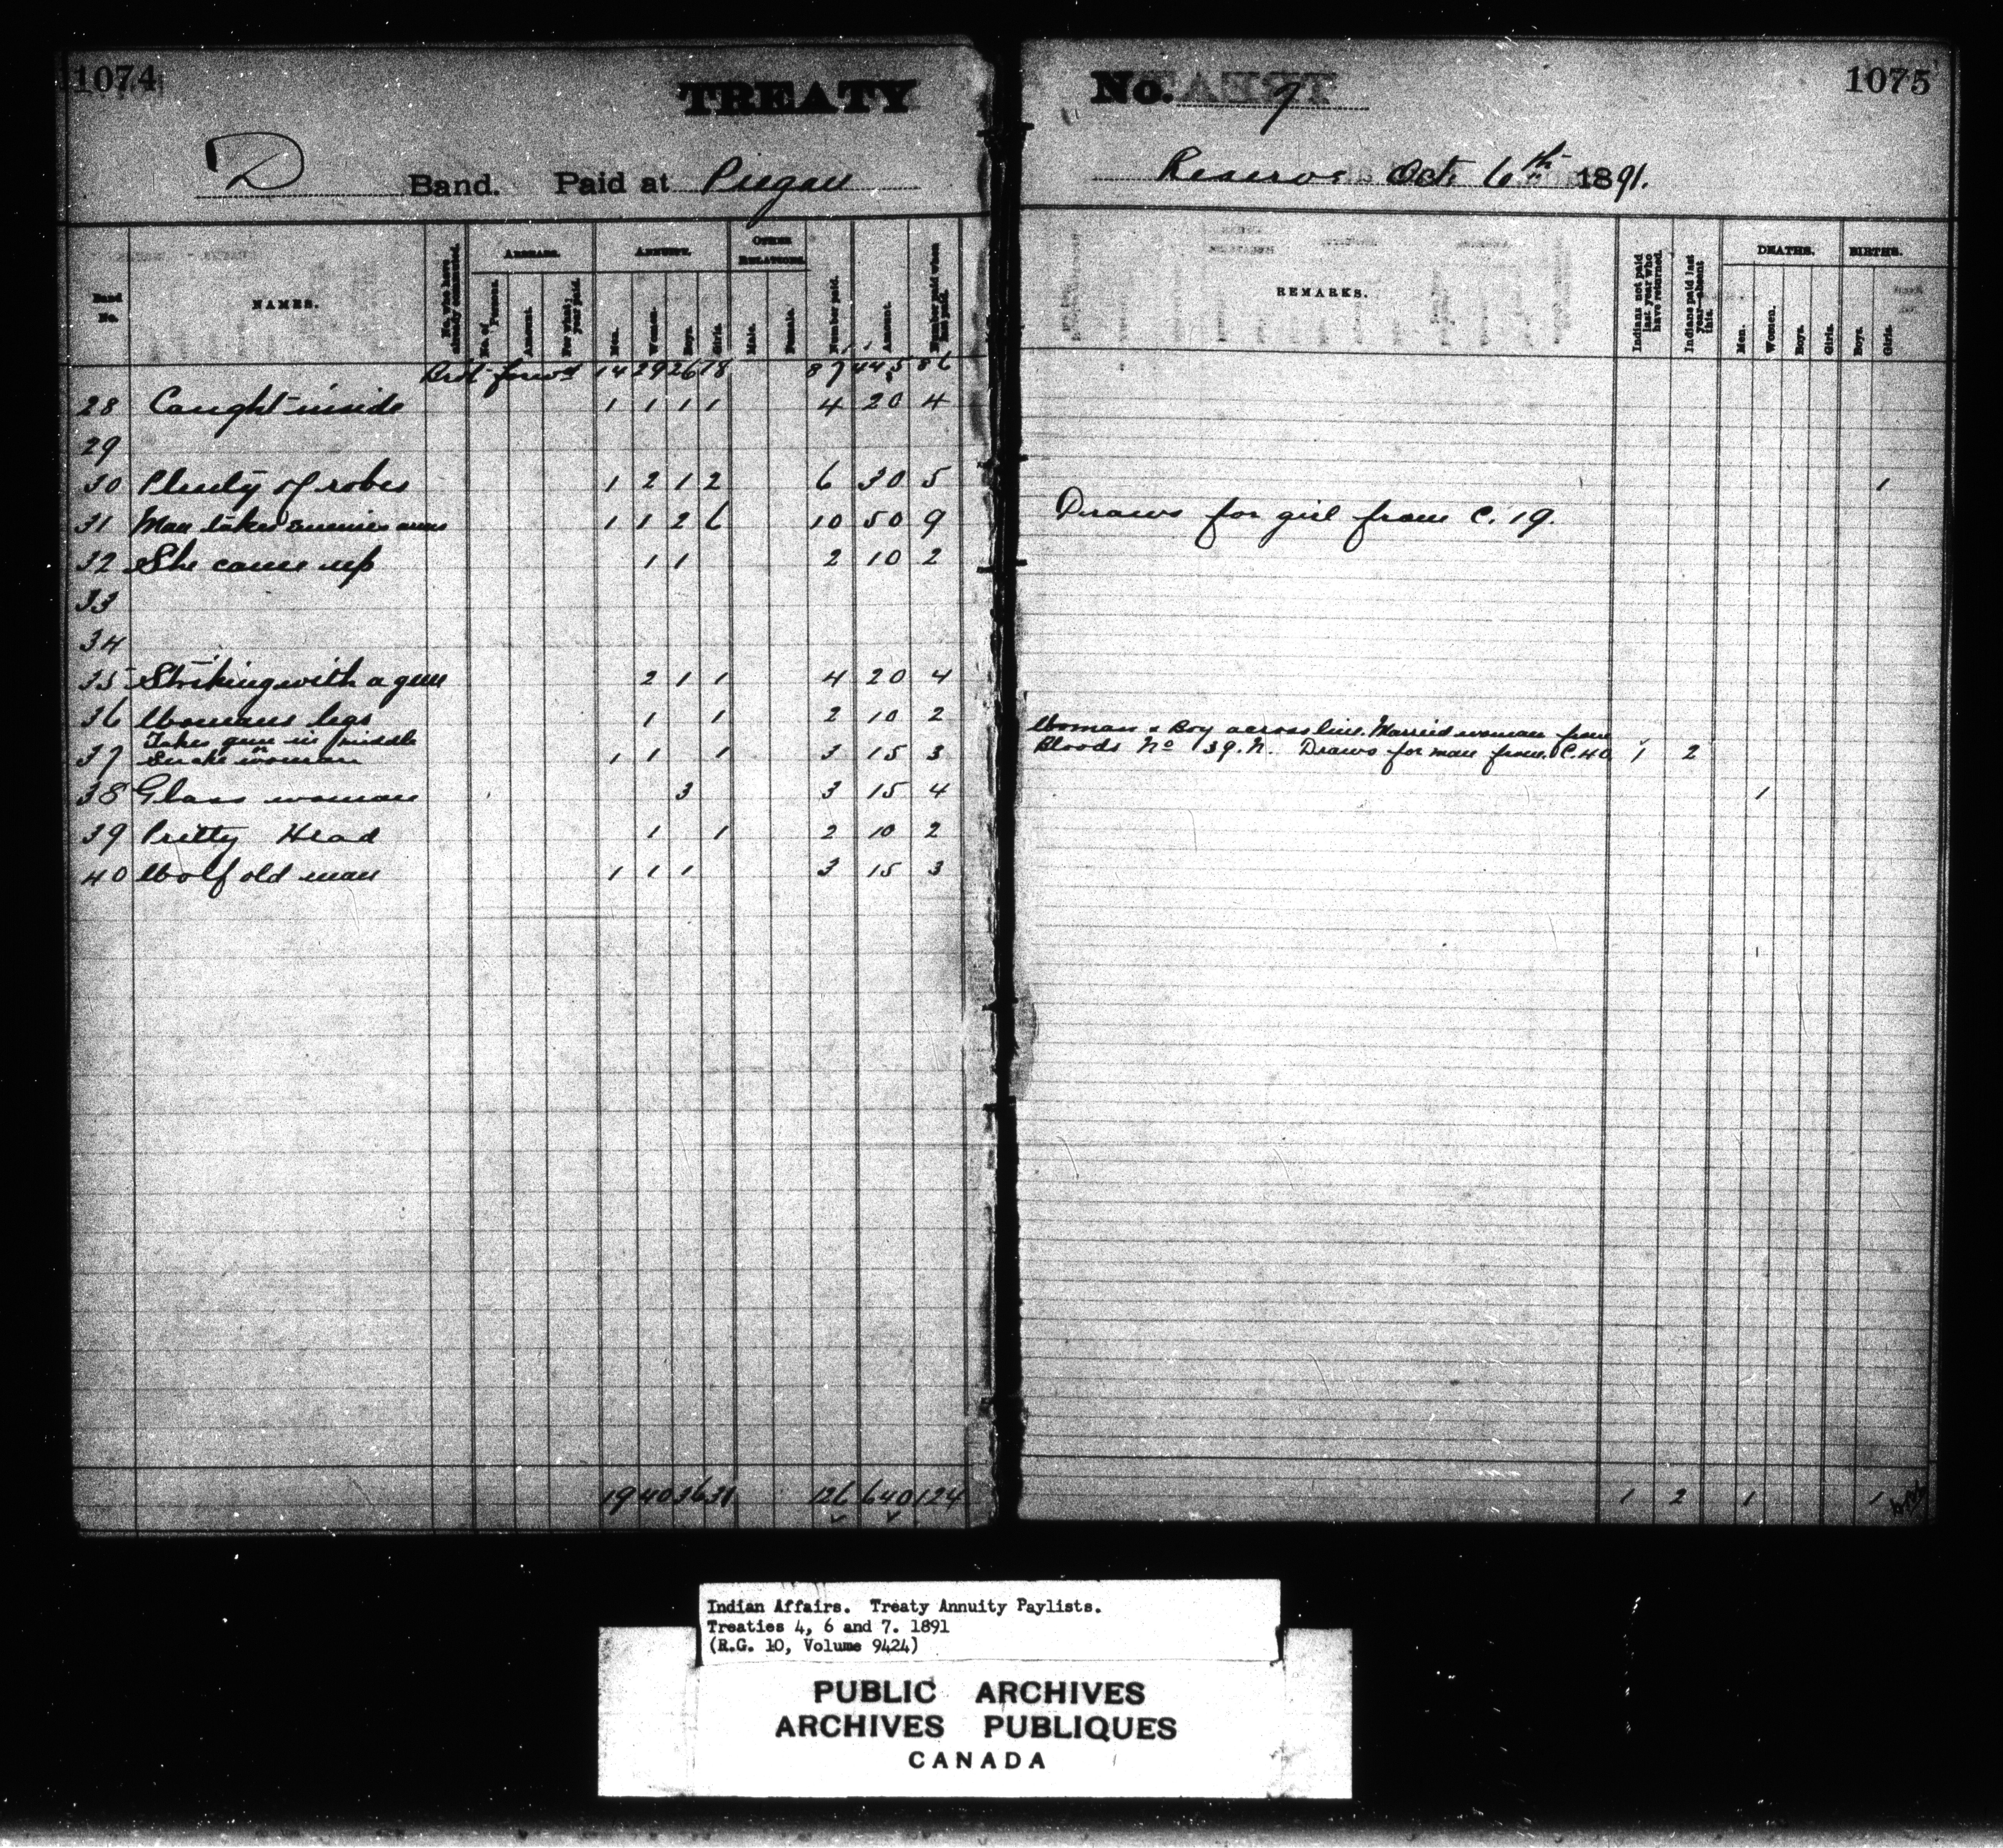 1074
TREATY
No. 7
1075
D Band. Paid at Piegan
Reserve Oct. 6th 1891.
Band No.
NAMES.
No. who have already commuted.
ARREARS.
No. of Persons.
Amount.
For what year paid.
ANNUITY.
Men.
Women.
Boys.
Girls.
OTHER RELATIONS.
Male.
Female.
Number paid.
Amount.
Number paid when last paid.
REMARKS.
Indians not paid last year who have returned.
Indians paid last year absent this.
DEATHS.
Men.
Women.
Boys.
Girls.
BIRTHS.
Boys.
Girls.
Brot forwd 14 29 26 18 87 445 86
28 Caught inside 1 1 1 1 4 20 4
29
30 Plenty of robes 1 2 1 2 6 30 5 1
31 Man takes enemies arms 1 1 2 6 10 50 9 Draws for girl from C. 19.
32 She came up 1 1 2 10 2
33
34
35 Striking with a gun 2 1 1 4 20 4
36 Womans legs 1 1 2 10 2
Takes gun in middle
or
37 Snake woman 1 1 1 3 15 3
Woman & Boy across line. Married woman from
Bloods No 39. N. Draws for man from C. 40 1 2
38 Glass woman 3 3 15 4 1
39 Pretty Head 1 1 2 10 2
40 Wolf old man 1 1 1 3 15 3
19 40 36 31 126 640 124 1 2 1 1
Indian Affairs. Treaty Annuity Paylists.
Treaties 4, 6 and 7. 1891
(R.G. 10, Volume 9424)
PUBLIC ARCHIVES
ARCHIVES PUBLIQUES
CANADA